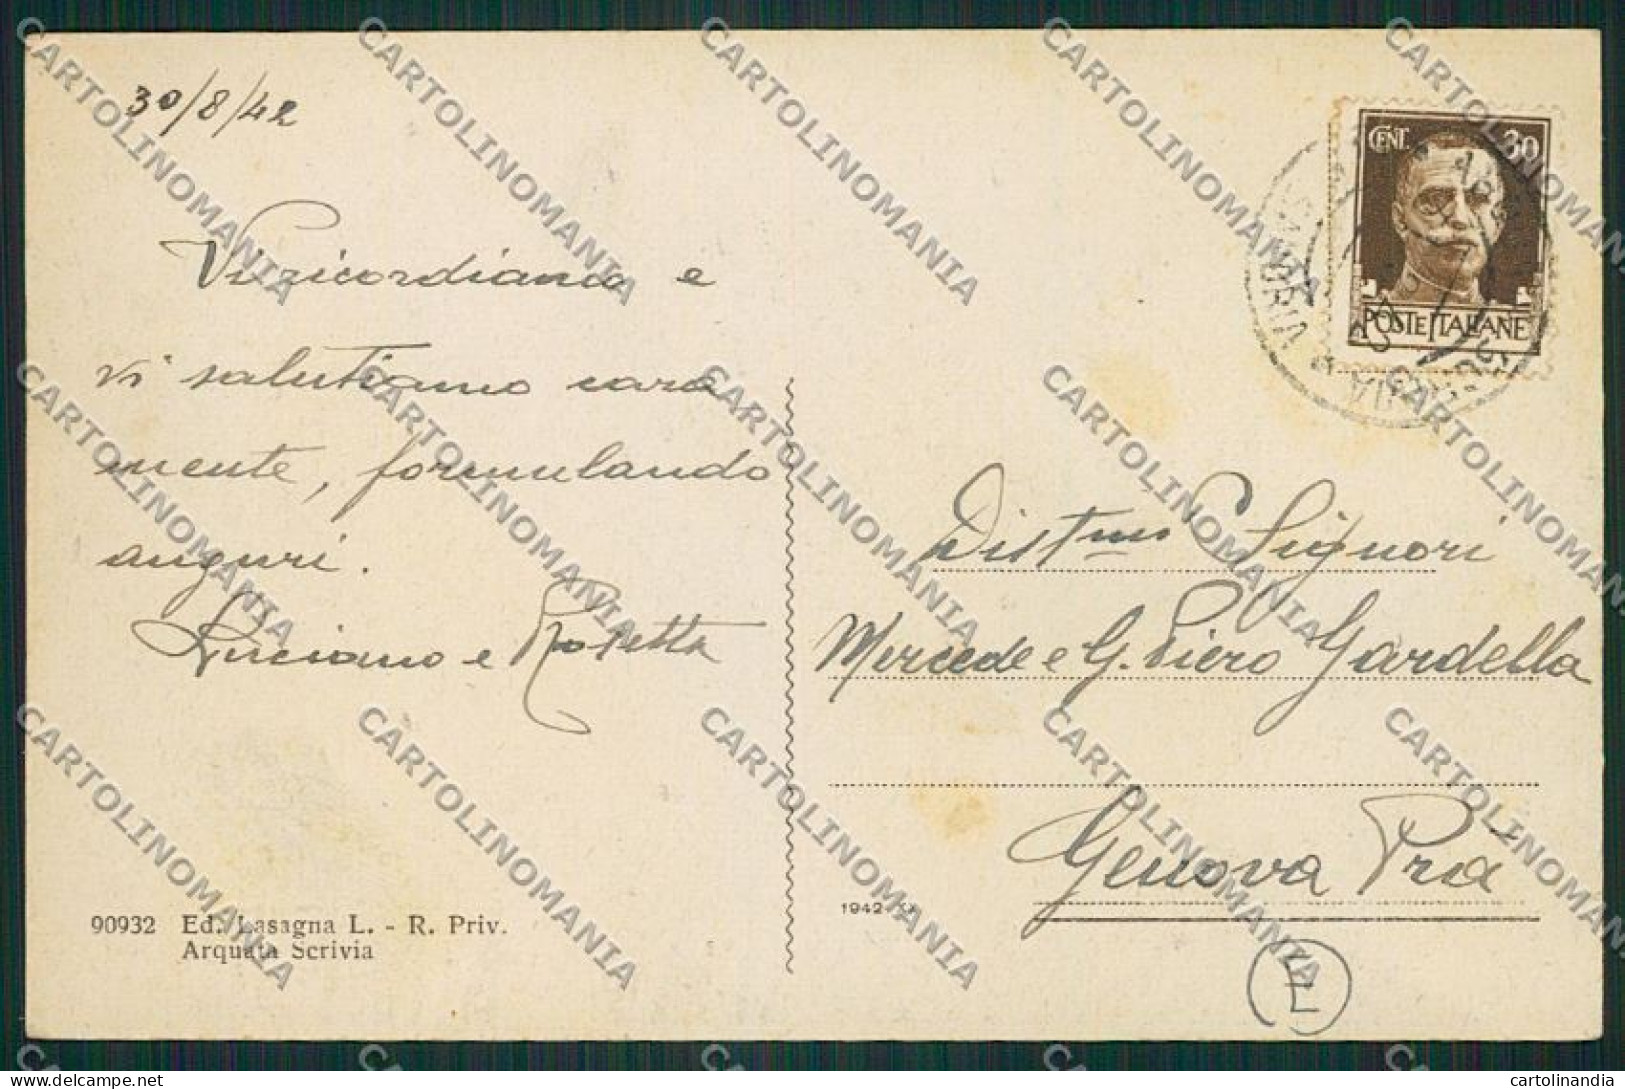 30/8/42
Vi ricordiamo e
vi salutiamo cara
mente, formulando
auguri.
Luciano e Rosetta
90932 Ed. Lasagna L. - R. Priv.
Arquata Scrivia
CENT. 30
POSTE ITALIANE
Dist.mi Signori
Mercede e G. Piero Gardella
Genova Prà
1942
L
CARTOLINOMANIA
delcampe.net
cartolinandia